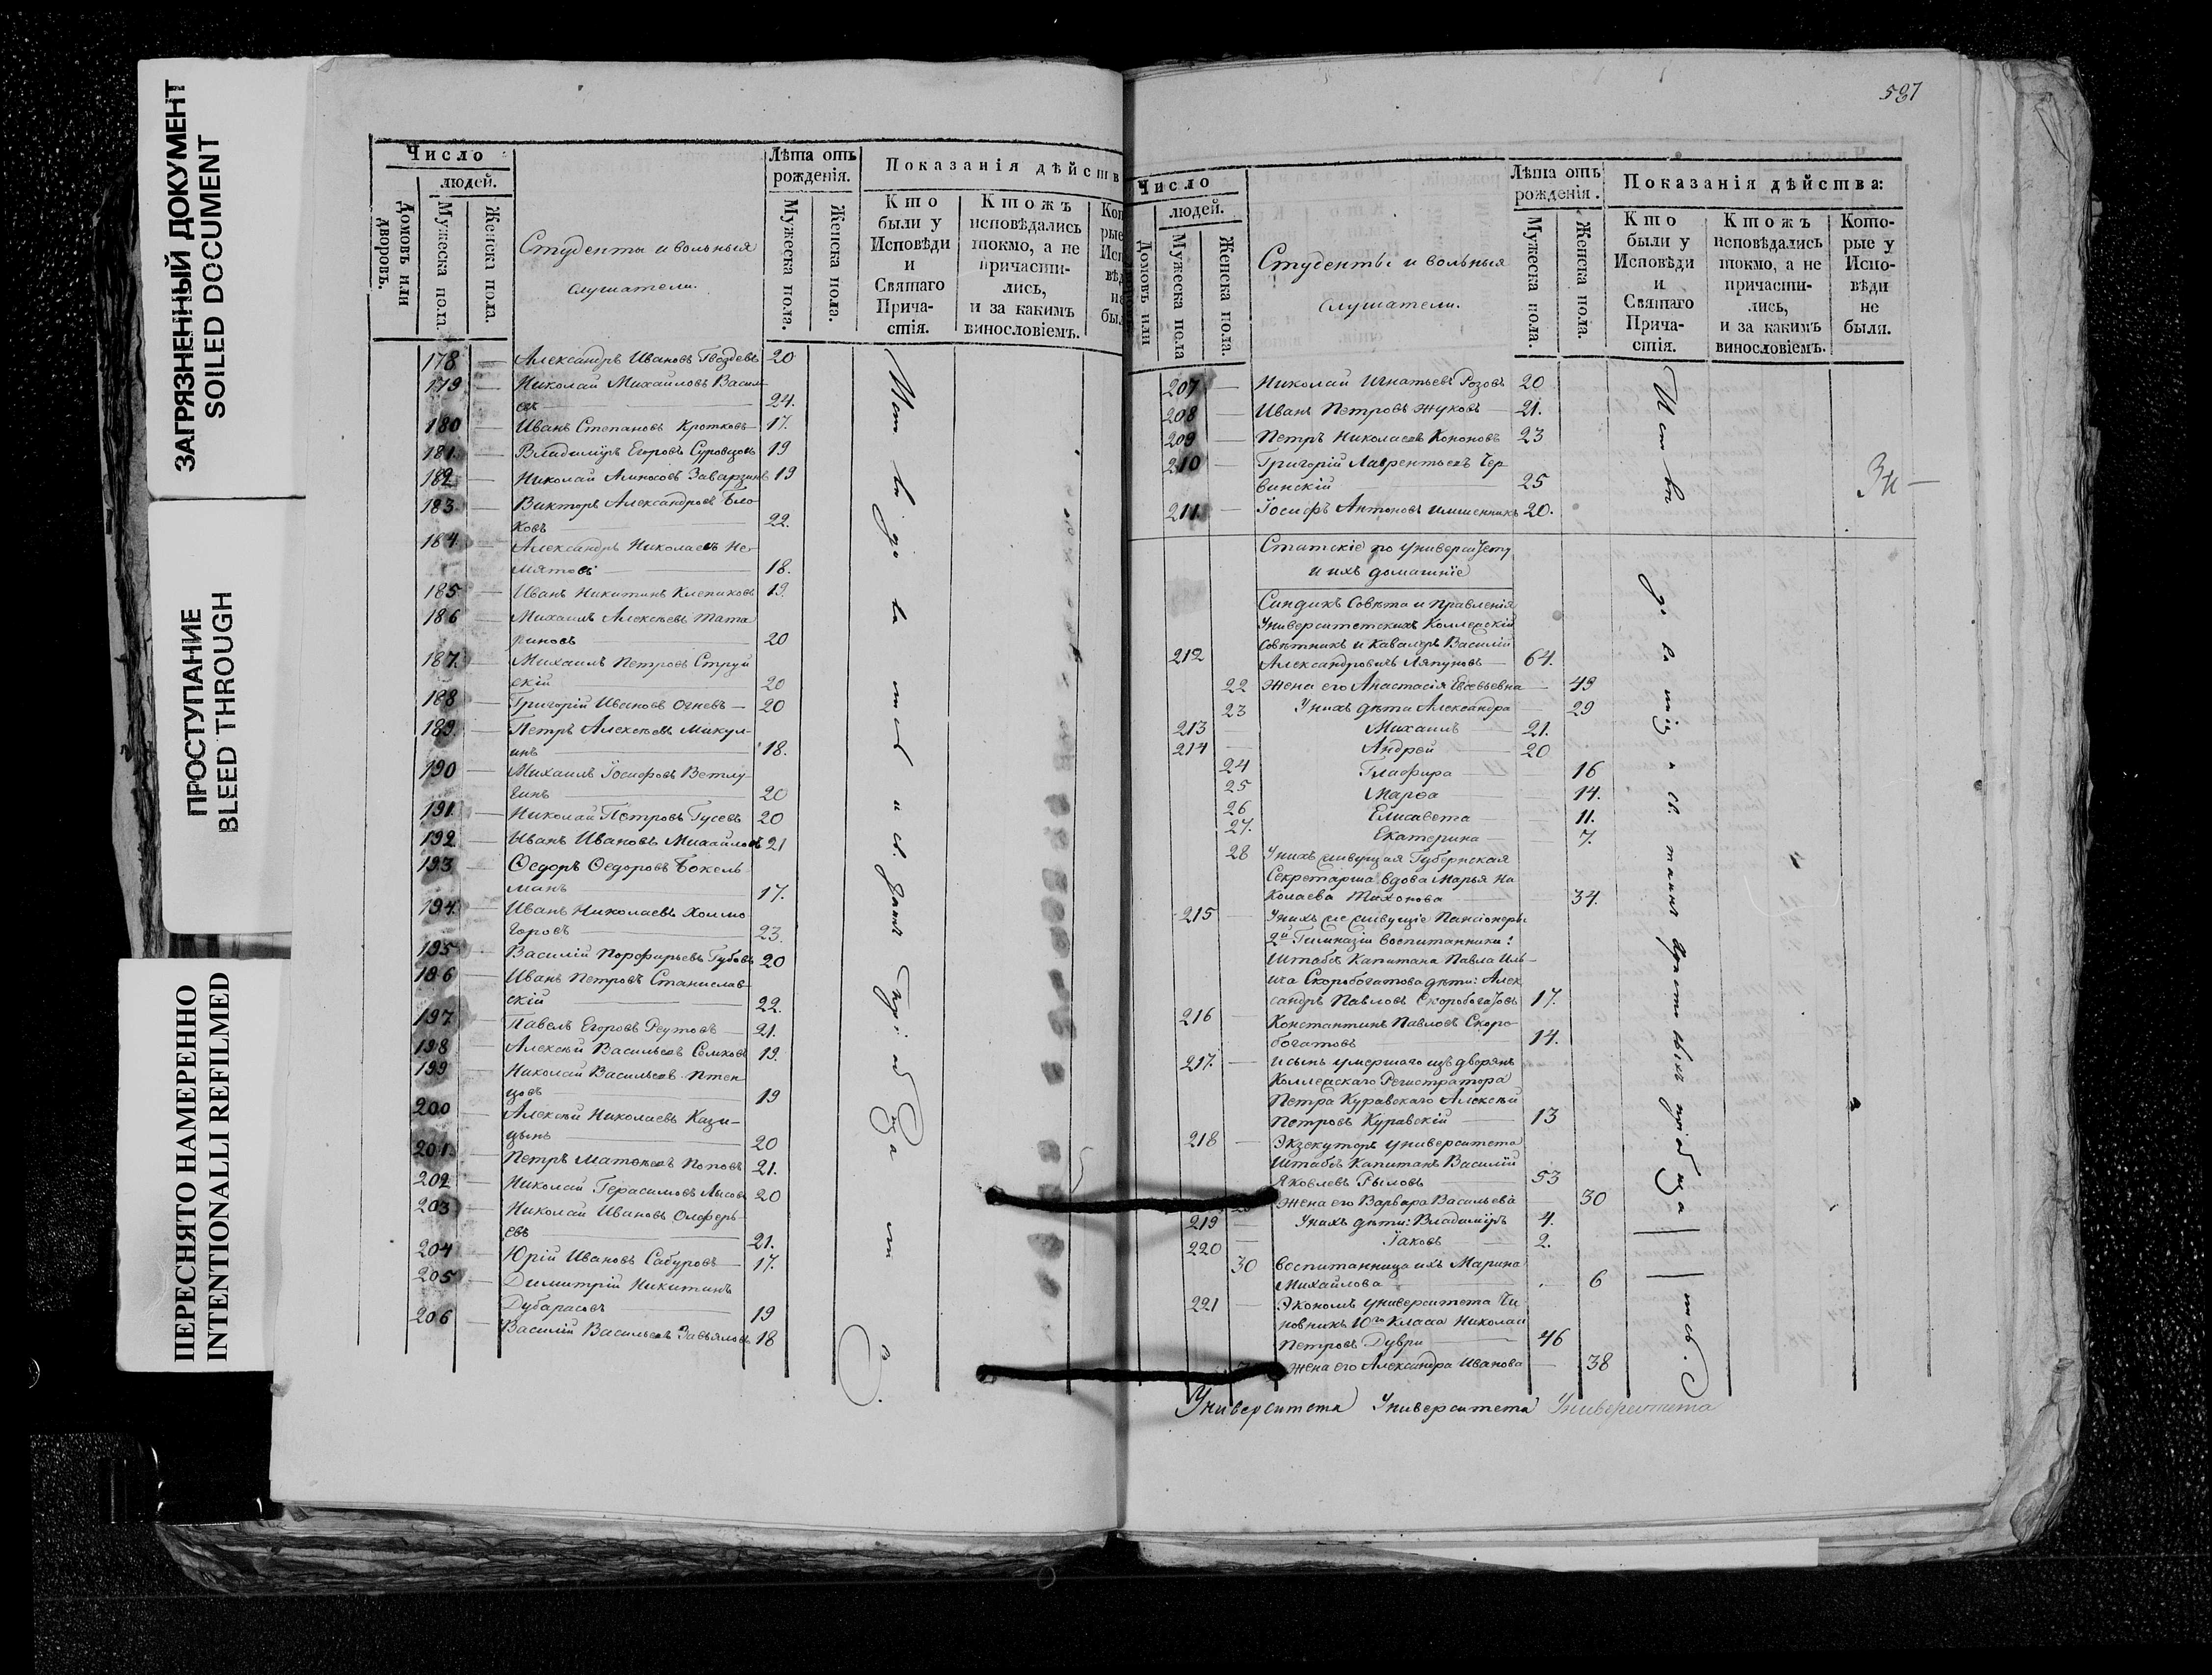 ЗАГРЯЗНЕННЫЙ ДОКУМЕНТ
SOILED DOCUMENT
ПРОСТУПАНИЕ
BLEED THROUGH
ПЕРЕСНЯТО НАМЕРЕННО
INTENTIONALLI REFILMED
Число
людей.
Домовъ или дворовъ.
Мужеска пола.
Женска пола.
Студенты и вольныя
слушатели.
Лѣта отъ
рожденія.
Мужеска пола.
Женска пола.
Показанія дѣйств
Кто
были у
Исповѣди
и
Святаго
Прича-
стія.
Ктожъ
исповѣдались
токмо, а не
причасти-
лись,
и за какимъ
винословіемъ.
178 Александръ Ивановъ Гвоздевъ 20
179 Николай Михайловъ Василь-
евъ 24.
180 Иванъ Степановъ Кротковъ 17.
181 Владиміръ Егоровъ Суровцовъ 19
182 Николай Амносовъ Заварзинъ 19
183 Викторъ Александровъ Бло-
ковъ 22.
184 Александръ Николаевъ Не-
18.
185 Иванъ Никитинъ Клепиковъ 19.
186 Михаилъ Алексѣевъ Тата
риновъ 20
187. Михаилъ Петровъ Струй
скій 20
188 Григорій Ивановъ Огневъ 20
189 Петръ Алексѣевъ Микул-
инъ 18.
190 Михаилъ Іосифовъ Ветлу-
гинъ 20
191 Николай Петровъ Гусевъ 20
192 Иванъ Ивановъ Михайловъ 21
193 Ѳедоръ Ѳедоровъ Бокель
манъ 17.
194 Иванъ Николаевъ Холмо
горовъ 23.
195 Василій Порфирьевъ Губовъ 20
196 Иванъ Петровъ Станислав-
скій 22.
197 Павелъ Егоровъ Реутовъ 21.
198 Алексѣй Васильевъ Семковъ 19.
199 Николай Васильевъ Птен-
цовъ 19
200 Алексѣй Николаевъ Кази-
цынъ 20
201 Петръ Матвѣевъ Поповъ 21.
202 Николай Герасимовъ Лысовъ 20
203 Николай Ивановъ Олферь-
евъ 21.
204 Юрій Ивановъ Сабуровъ 17.
205 Димитрій Никитинъ
Дубарасовъ 19
206 Василій Васильевъ Завьяловъ 18
537
Число
людей.
Домовъ или
Мужеска пола
Женска пола.
Студенты и вольныя
слушатели.
Лѣта отъ
рожденія.
Мужеска пола.
Женска пола.
Показанія дѣйства:
Кто
были у
Исповѣди
и
Святаго
Прича-
стія.
Ктожъ
исповѣдались
токмо, а не
причасти-
лись,
и за какимъ
винословіемъ.
Кото-
рые у
Испо-
вѣди
не
были.
207 Николай Игнатьевъ Розовъ 20
208 Иванъ Петровъ Жуковъ 21.
209 Петръ Николаевъ Кононовъ 23
210 Григорій Лаврентьевъ Чер
винскій 25
211 Іосифъ Антоновъ 20.
Статскіе по университету
и ихъ домашніе
Синдикъ Совѣта и Правленія
Университетскихъ Коллежскій
Совѣтникъ и Кавалеръ Василій
212 Александровичъ Ляпуновъ 64.
22 Жена его Анастасія Евсевьевна 49
23 У нихъ дѣти Александра 29
213 Михаилъ 21.
214 Андрей 20
24 Глафира 16
25 Марѳа 14.
26 Елисавета 11.
27. Екатерина 7.
28 У нихъ живущая Губернская
Секретарша вдова Марья Ни
колаева Тихонова 34.
215 У нихъ же живущіе Пансіонеры
2й Гимназіи воспитанники:
Штабсъ Капитана Павла Иль-
ича Скоробогатова дѣти: Алек
сандръ Павловъ Скоробогатовъ 17.
216 Константинъ Павловъ Скоро-
богатовъ 14.
217. и сынъ умершаго изъ дворянъ
Коллежскаго Регистратора
Петра Куравскаго Алексѣй
Петровъ Куравскій 13
218 Экзекуторъ университета
Штабсъ Капитанъ Василій
Яковлевъ Рыловъ 53
Жена его Варвара Васильева 30
219 У нихъ дѣти: Владиміръ 4.
220 Іаковъ 2.
30 Воспитанница ихъ Марина
Михайлова 6
221 Экономъ университета Чи
новникъ 10го Класса Николай
Петровъ Дуври 46
Жена его Александра Иванова 38
Университета Университета Университета